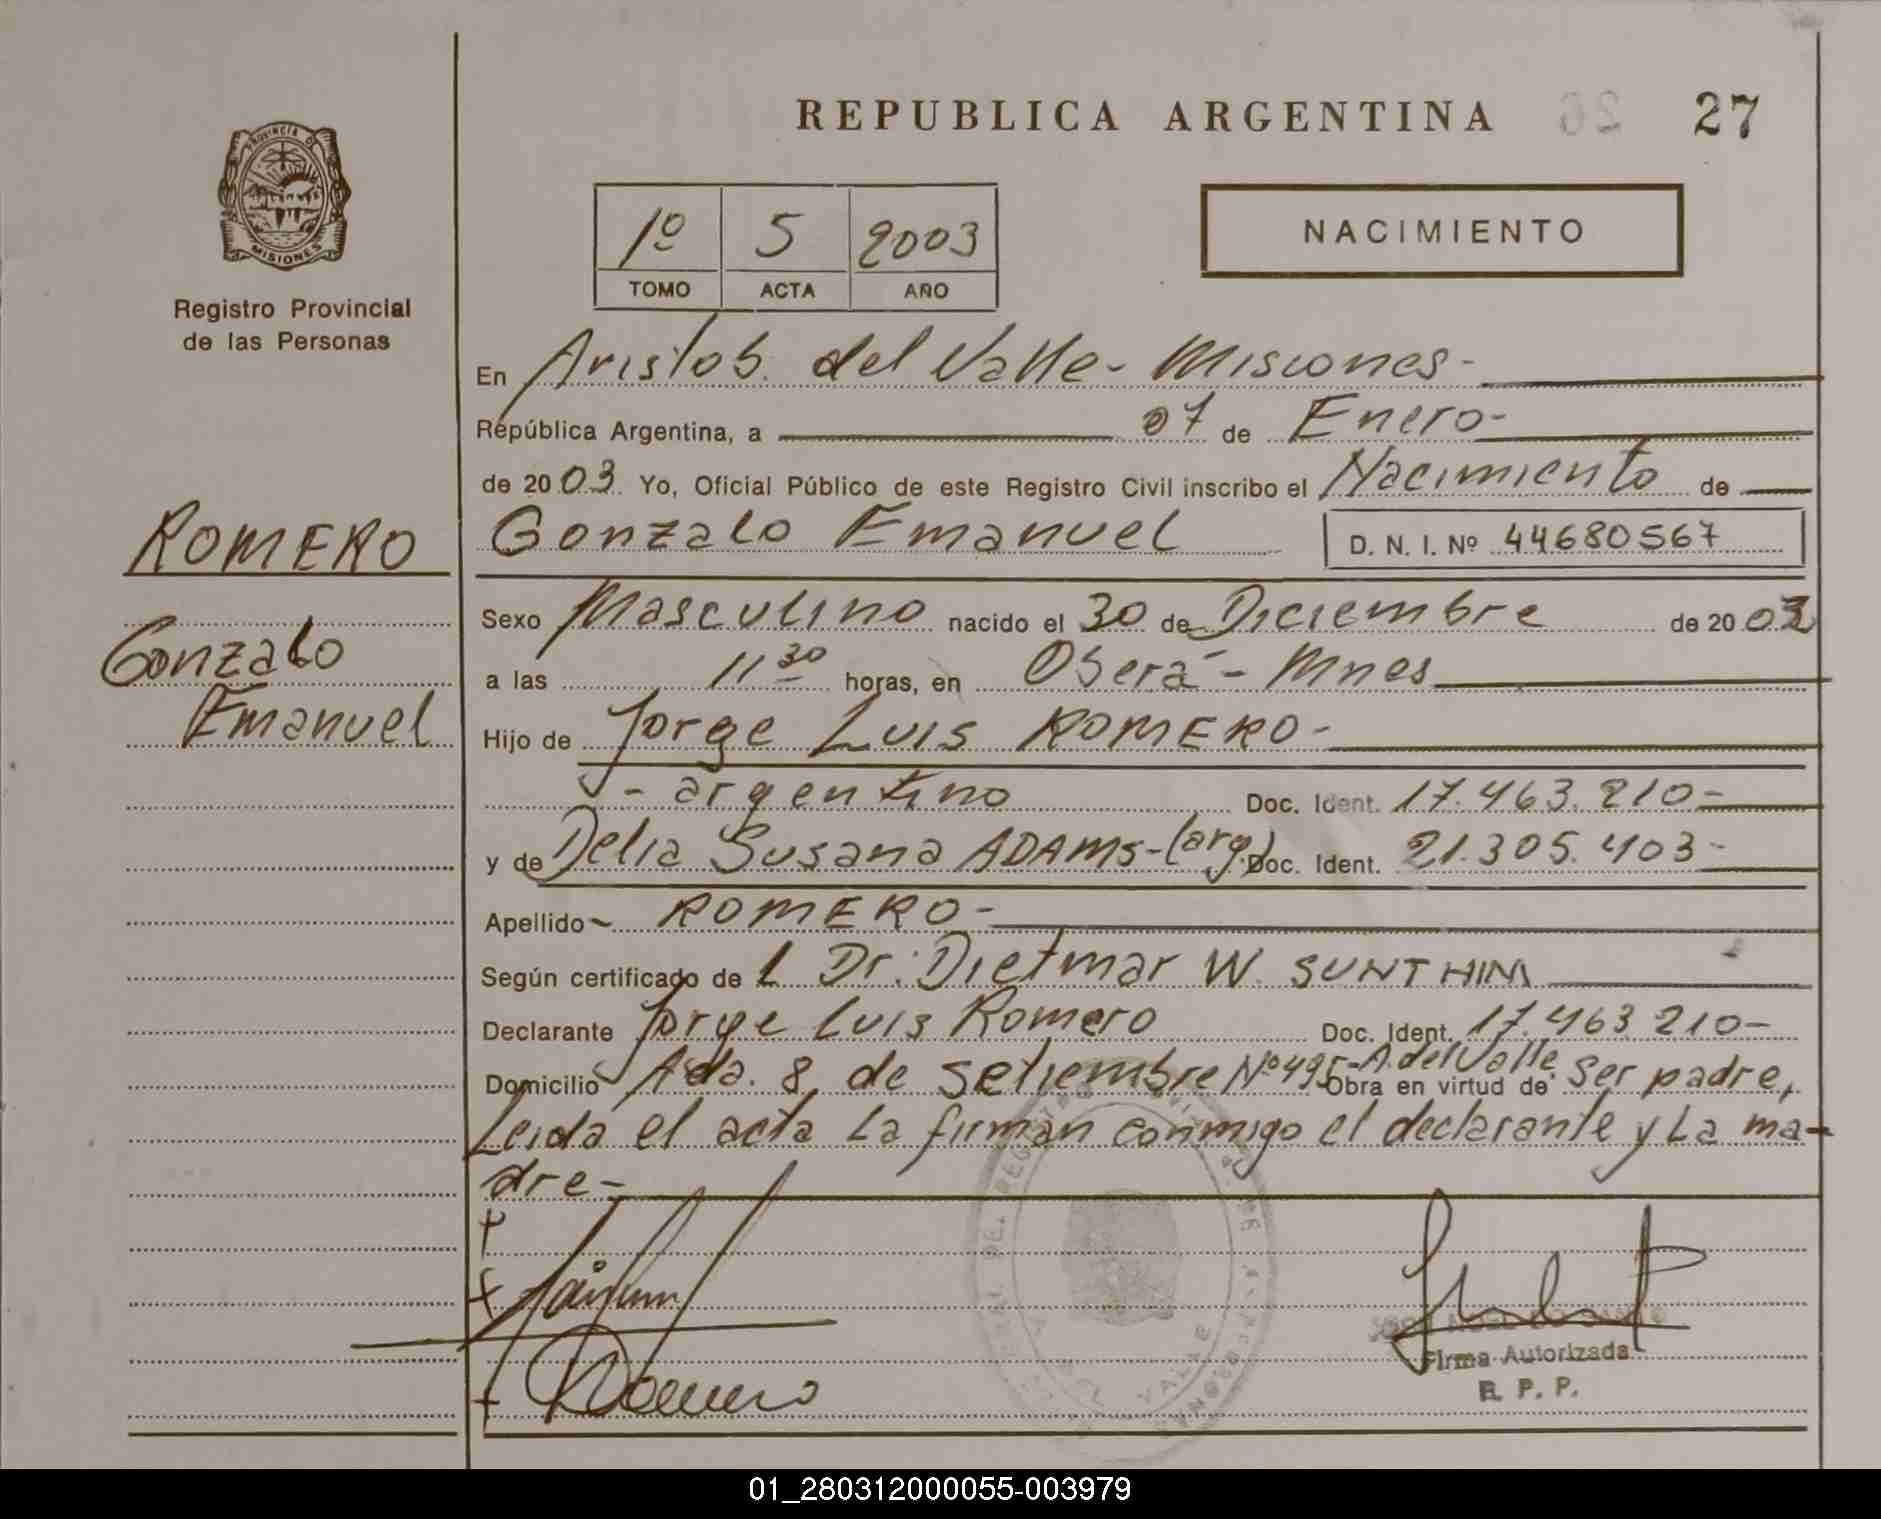 REPUBLICA ARGENTINA 26 27
PROVINCIA DE
MISIONES
Registro Provincial
de las Personas
1º 5 2003
TOMO ACTA AÑO
NACIMIENTO
En Aristob. del Valle - Misiones -
República Argentina, a 07 de Enero -
de 2003. Yo, Oficial Público de este Registro Civil inscribo el Nacimiento de
ROMERO
Gonzalo Emanuel D. N. I. Nº 44680567
Gonzalo
Emanuel
Sexo Masculino nacido el 30 de Diciembre de 2002
a las 11 30 horas, en Oberá - Mnes
Hijo de Jorge Luis ROMERO -
- argentino Doc. Ident. 17.463.210 -
y de Delia Susana ADAMS - (arg.) Doc. Ident. 21.305.403 -
Apellido ROMERO -
Según certificado de L Dr. Dietmar W. SUNTHIM
Declarante Jorge Luis Romero Doc. Ident. 17.463.210 -
Domicilio Ada. 8 de setiembre Nº 495 - A. del Valle Obra en virtud de ser padre,
Leida el acta La firman conmigo el declarante y La ma-
dre -
Romero
Firma Autorizada
R. P. P.
01_280312000055-003979